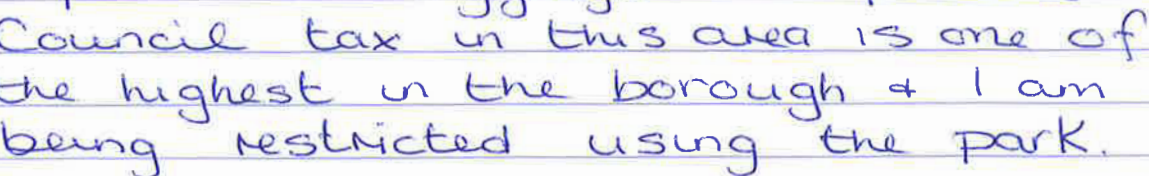 Council tax in this area is one of
the highest in the borough & I am
being restricted using the park.